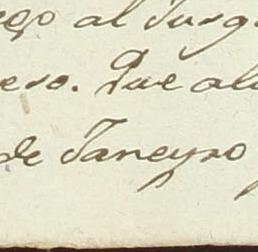 al Jusg
eso. Que al
de Janeyro